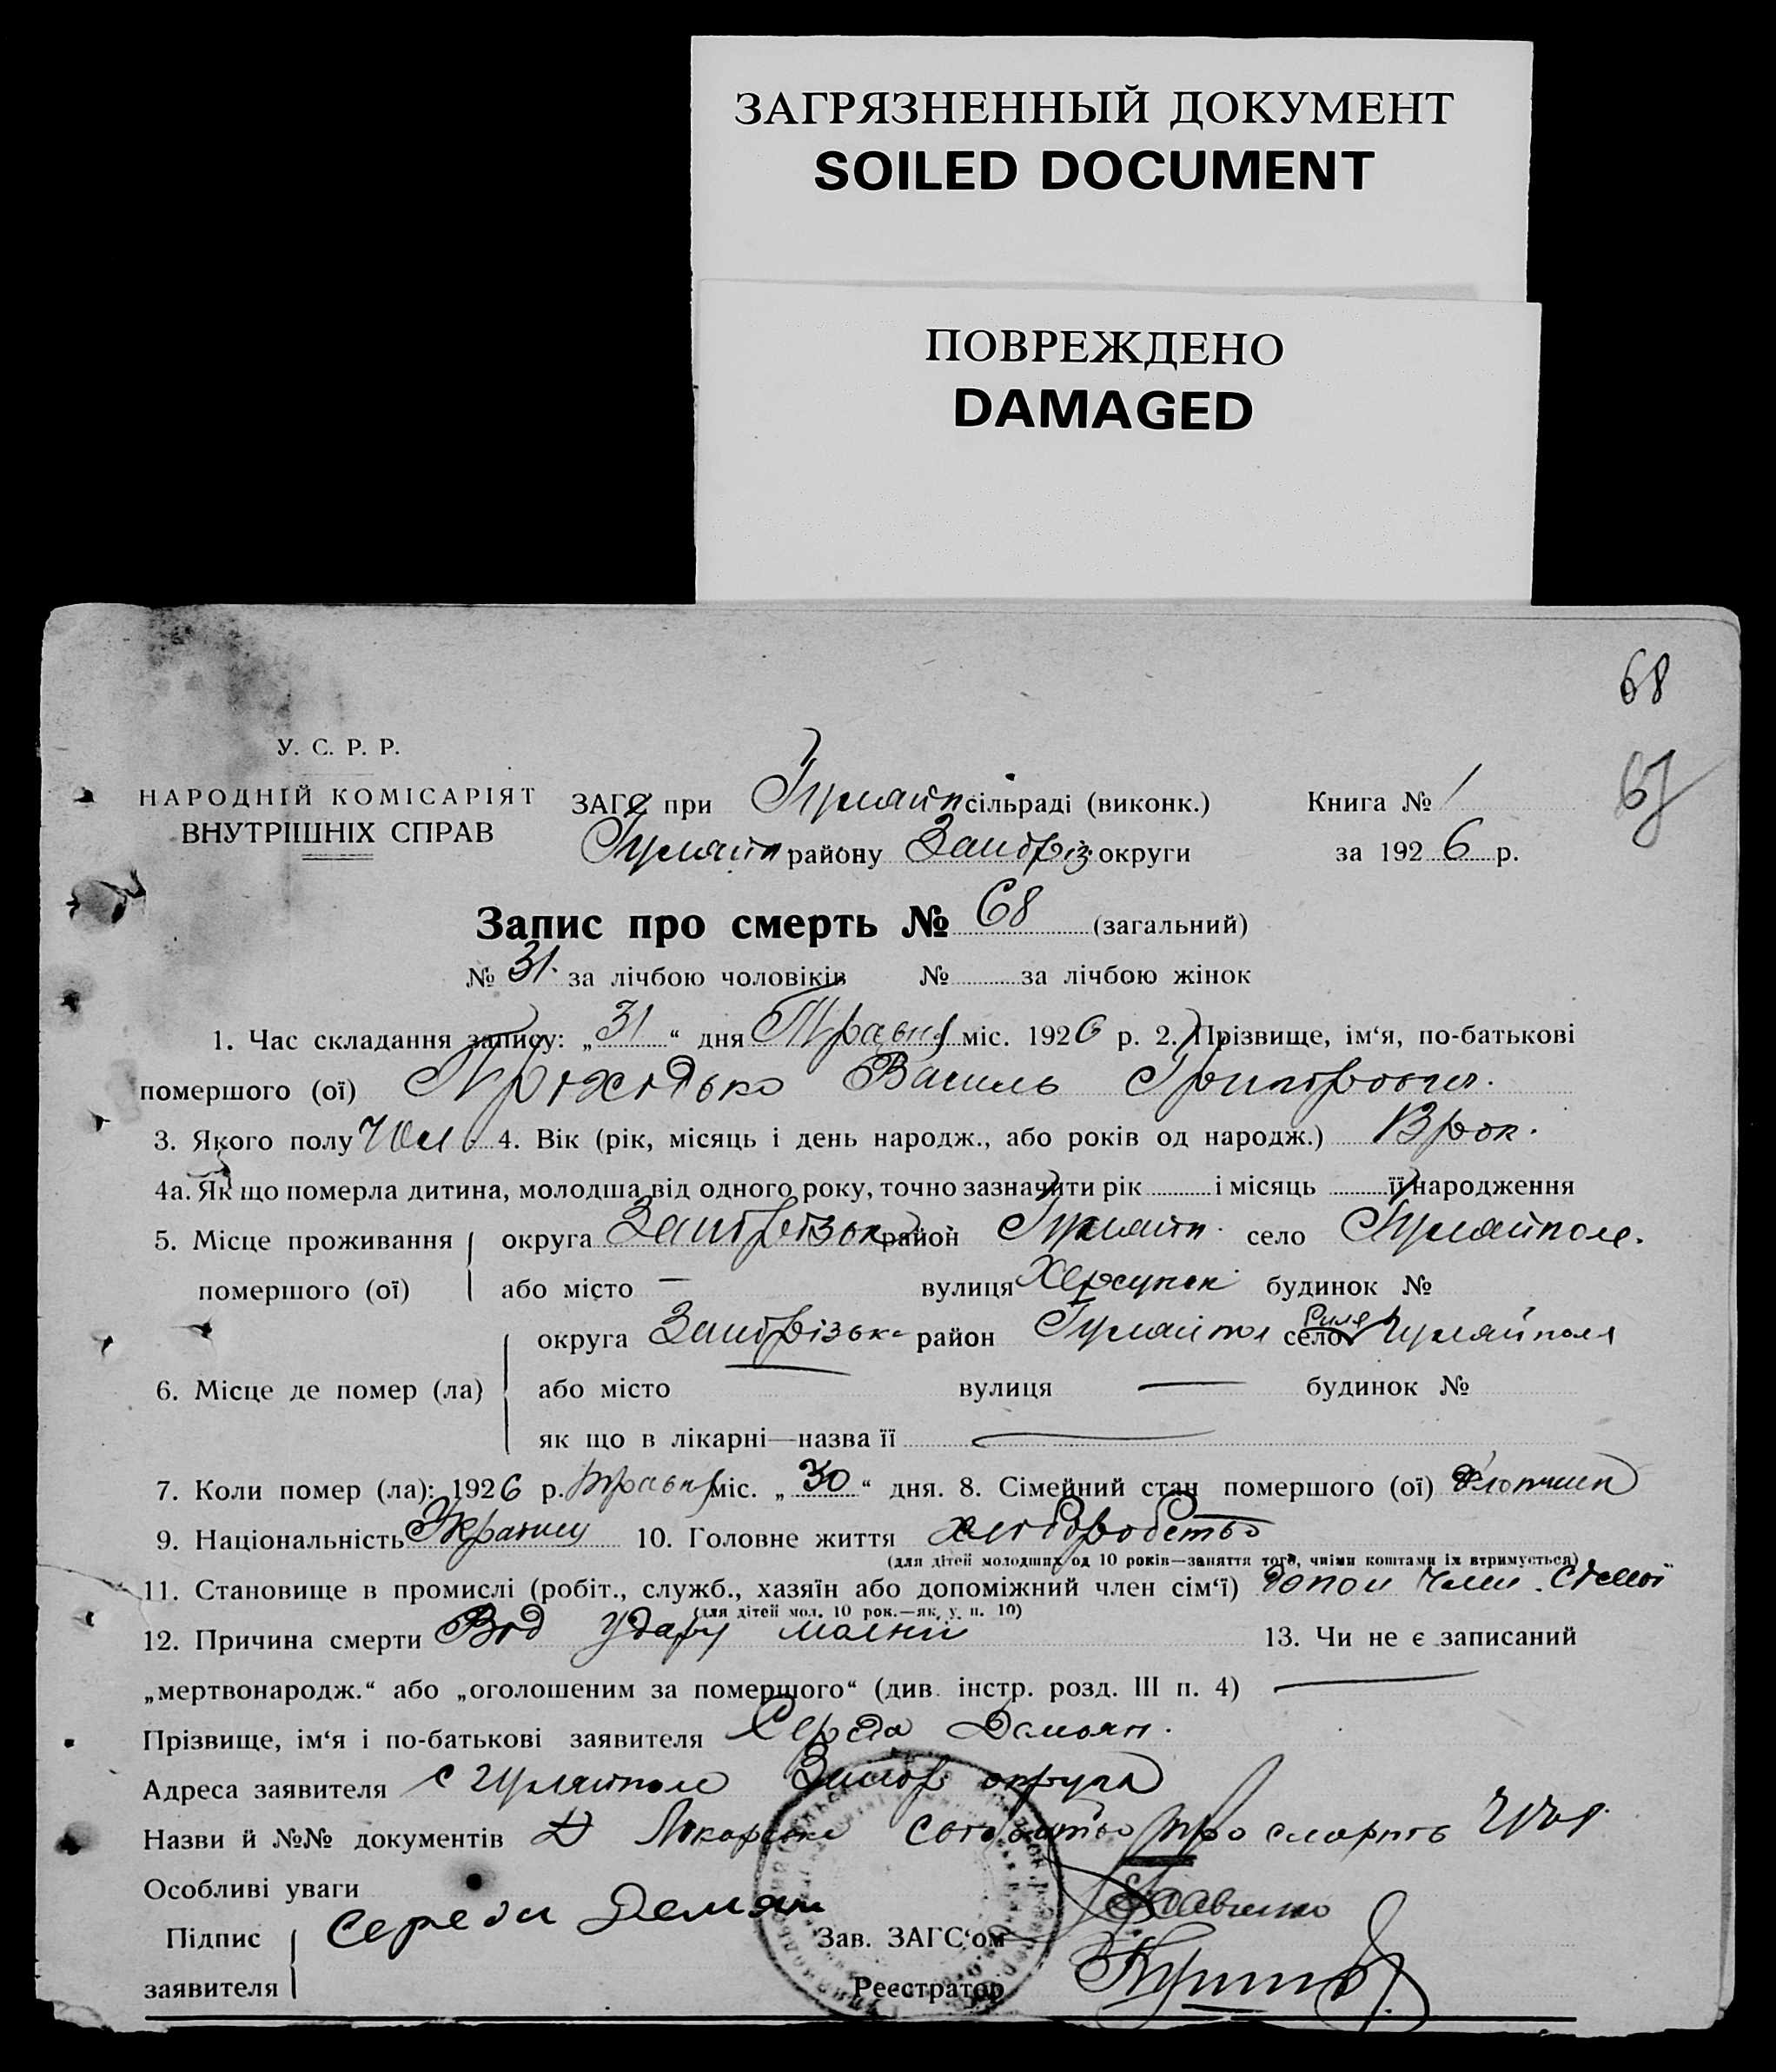 ЗАГРЯЗНЕННЫЙ ДОКУМЕНТ
SOILED DOCUMENT
ПОВРЕЖДЕНО
DAMAGED
68
67
У. С. Р. Р.
НАРОДНІЙ КОМІСАРІЯТ
ВНУТРІШНІХ СПРАВ
ЗАГС при Гуляйп сільраді (виконк.) Книга № 1
Гуляйп району Запоріз округи за 1926 р.
Запис про смерть № 68 (загальний)
№ 31. за лічбою чоловіків № за лічбою жінок
1. Час складання запису: „31“ дня Травня міс. 1926 р. 2. Прізвище, ім‘я, по-батькові
помершого (ої) Василь Григорович.
3. Якого полу Чол. 4. Вік (рік, місяць і день народж., або років од народж.) рок.
4а. Як що померла дитина, молодша від одного року, точно зазначити рік і місяць її народження
5. Місце проживання округа Запорізьк район Гуляйп. село Гуляйполе.
помершого (ої) або місто — вулиця будинок №
округа Запорізьк район Гуляйпол село біля Гуляйполя
6. Місце де помер (ла) або місто вулиця — будинок №
як що в лікарні—назва її —
7. Коли помер (ла): 1926 р. травня міс. „30“ дня. 8. Сімейний стан помершого (ої)
9. Національність Українец 10. Головне життя хліборобство
(для дітей молодших од 10 років—заняття того, чиїми коштами їх втримується)
11. Становище в промислі (робіт., служб., хазяїн або допоміжний член сім‘ї) допом член. сімьї
(для дітей мол. 10 рок.—як, у. п. 10)
12. Причина смерти Від удару молнії 13. Чи не є записаний
„мертвонародж.“ або „оголошеним за помершого“ (див. інстр. розд. III п. 4) —
Прізвище, ім‘я і по-батькові заявителя Середа Демьян.
Адреса заявителя с Гуляйполе Запор округа
Назви й №№ документів Лікарське про смерть
Особливі уваги
Підпис Середа Демян Зав. ЗАГС‘ом
заявителя Реєстратор